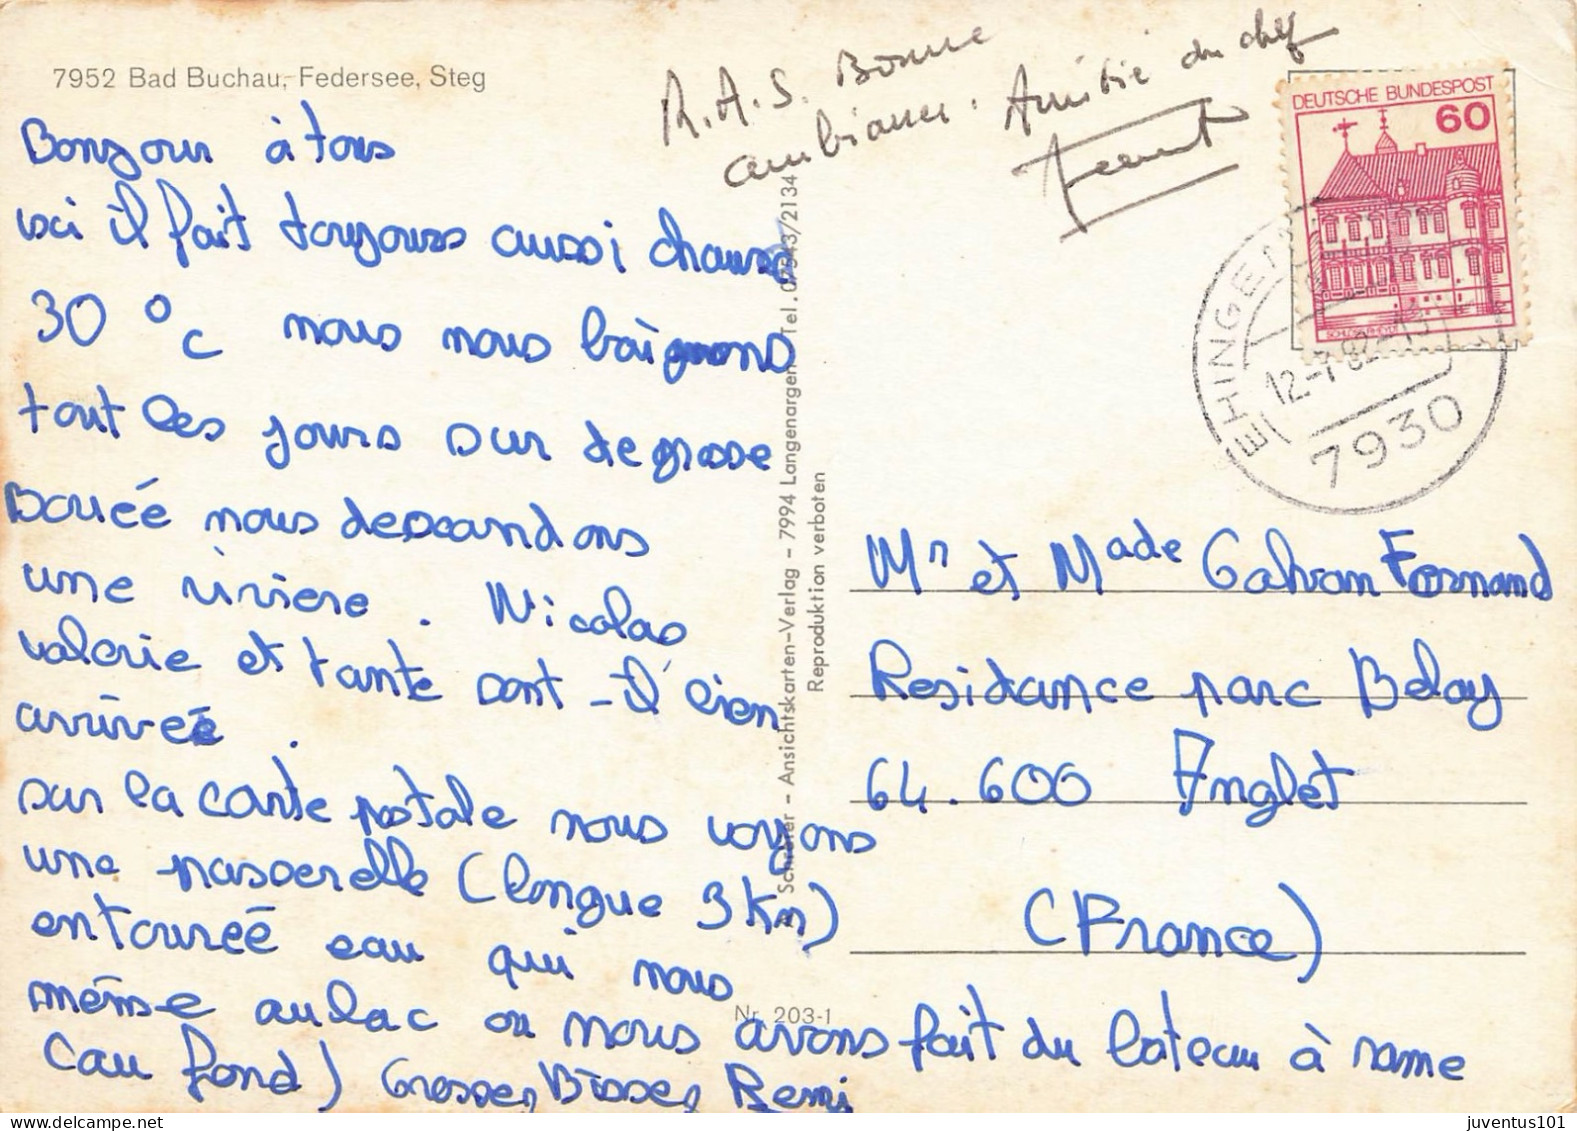 7952 Bad Buchau, Federsee, Steg
R.A.S. Bonne
ambiance. Amitié du chef
DEUTSCHE BUNDESPOST
60
SCHLOSS RHEYDT
EHINGEN
12.-7.82-15
7930
Bonzour à tous
ici il fait toujours aussi chaud
30 °c nous nous baignons
tout les jours sur de grosse
Bouéé nous descandons
une riviere. Nicolas
valerie et tante sont-il bien
arriveé.
sur la carte postale nous voyons
une passerelle (longue 3 Km)
entouréé eau qui nous
méns-e au lac ou nous avons fait du bateau à rame
(au fond) Grosses Bisses Remi
Schreier - Ansichtskarten-Verlag - 7994 Langenargen Tel. 07543/2134
Reproduktion verboten
Nr. 203-1
Mr et Made Galvan Fernand
Residance parc Belay
64.600 Anglet
(France)
juventus101